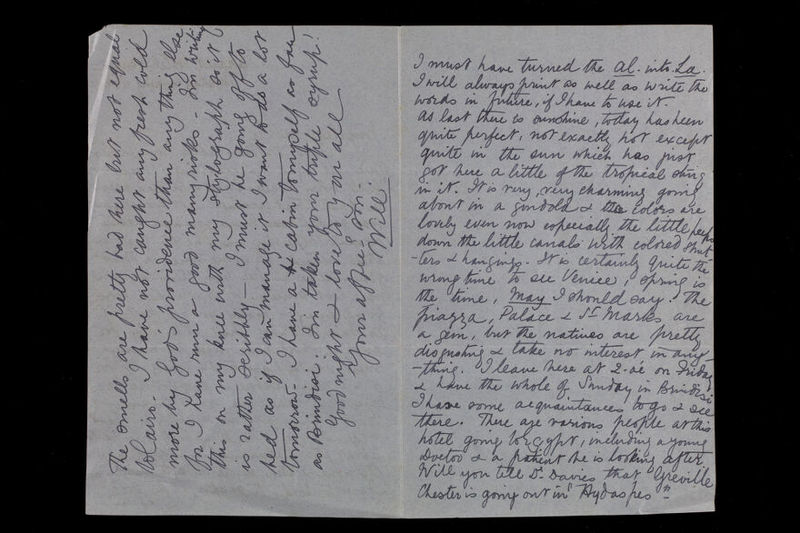 I must have turned the Al. into La.
I will always print as well as write the
words in future, if I have to use it.
At last there is sunshine, today has been
quite perfect, not exactly hot except
quite in the sun which has just
got here a little of the tropical sting
in it. It is very, very charming going
about in a gondola & the colors are
lovely even now especially the little peeps
down the little canals with colored shut
-ters & hangings. It is certainly quite the
wrong time to see Venice, spring is
the time, May I should say. The
piazza, Palace & St Marks are
a gem, but the natives are pretty
disgusting & take no interest in any
-thing. I leave here at 2. on Friday
& have the whole of Sunday in Brindisi
I have some acquaintances to go & see
there. There are various people at this
hotel going to Egypt, including a young
Doctor & a patient he is looking after
Will you tell Dr Davies that Greville
Chester is going out in "Hydaspes"
The smells are pretty bad here but not equal
to Cairo. I have not caught any fresh cold
more by God's providence than any thing else
for I have run a good many risks. I'm writing
this on my knee with my stylograph so it
is rather scribbly — I must be going off to
bed as if I can manage it I want to do a lot
tomorrow. I have a cabin to myself as far
as Brindisi. I'm taken your triple syrup!
Good night & love to you all
Your affec: son.
Will: